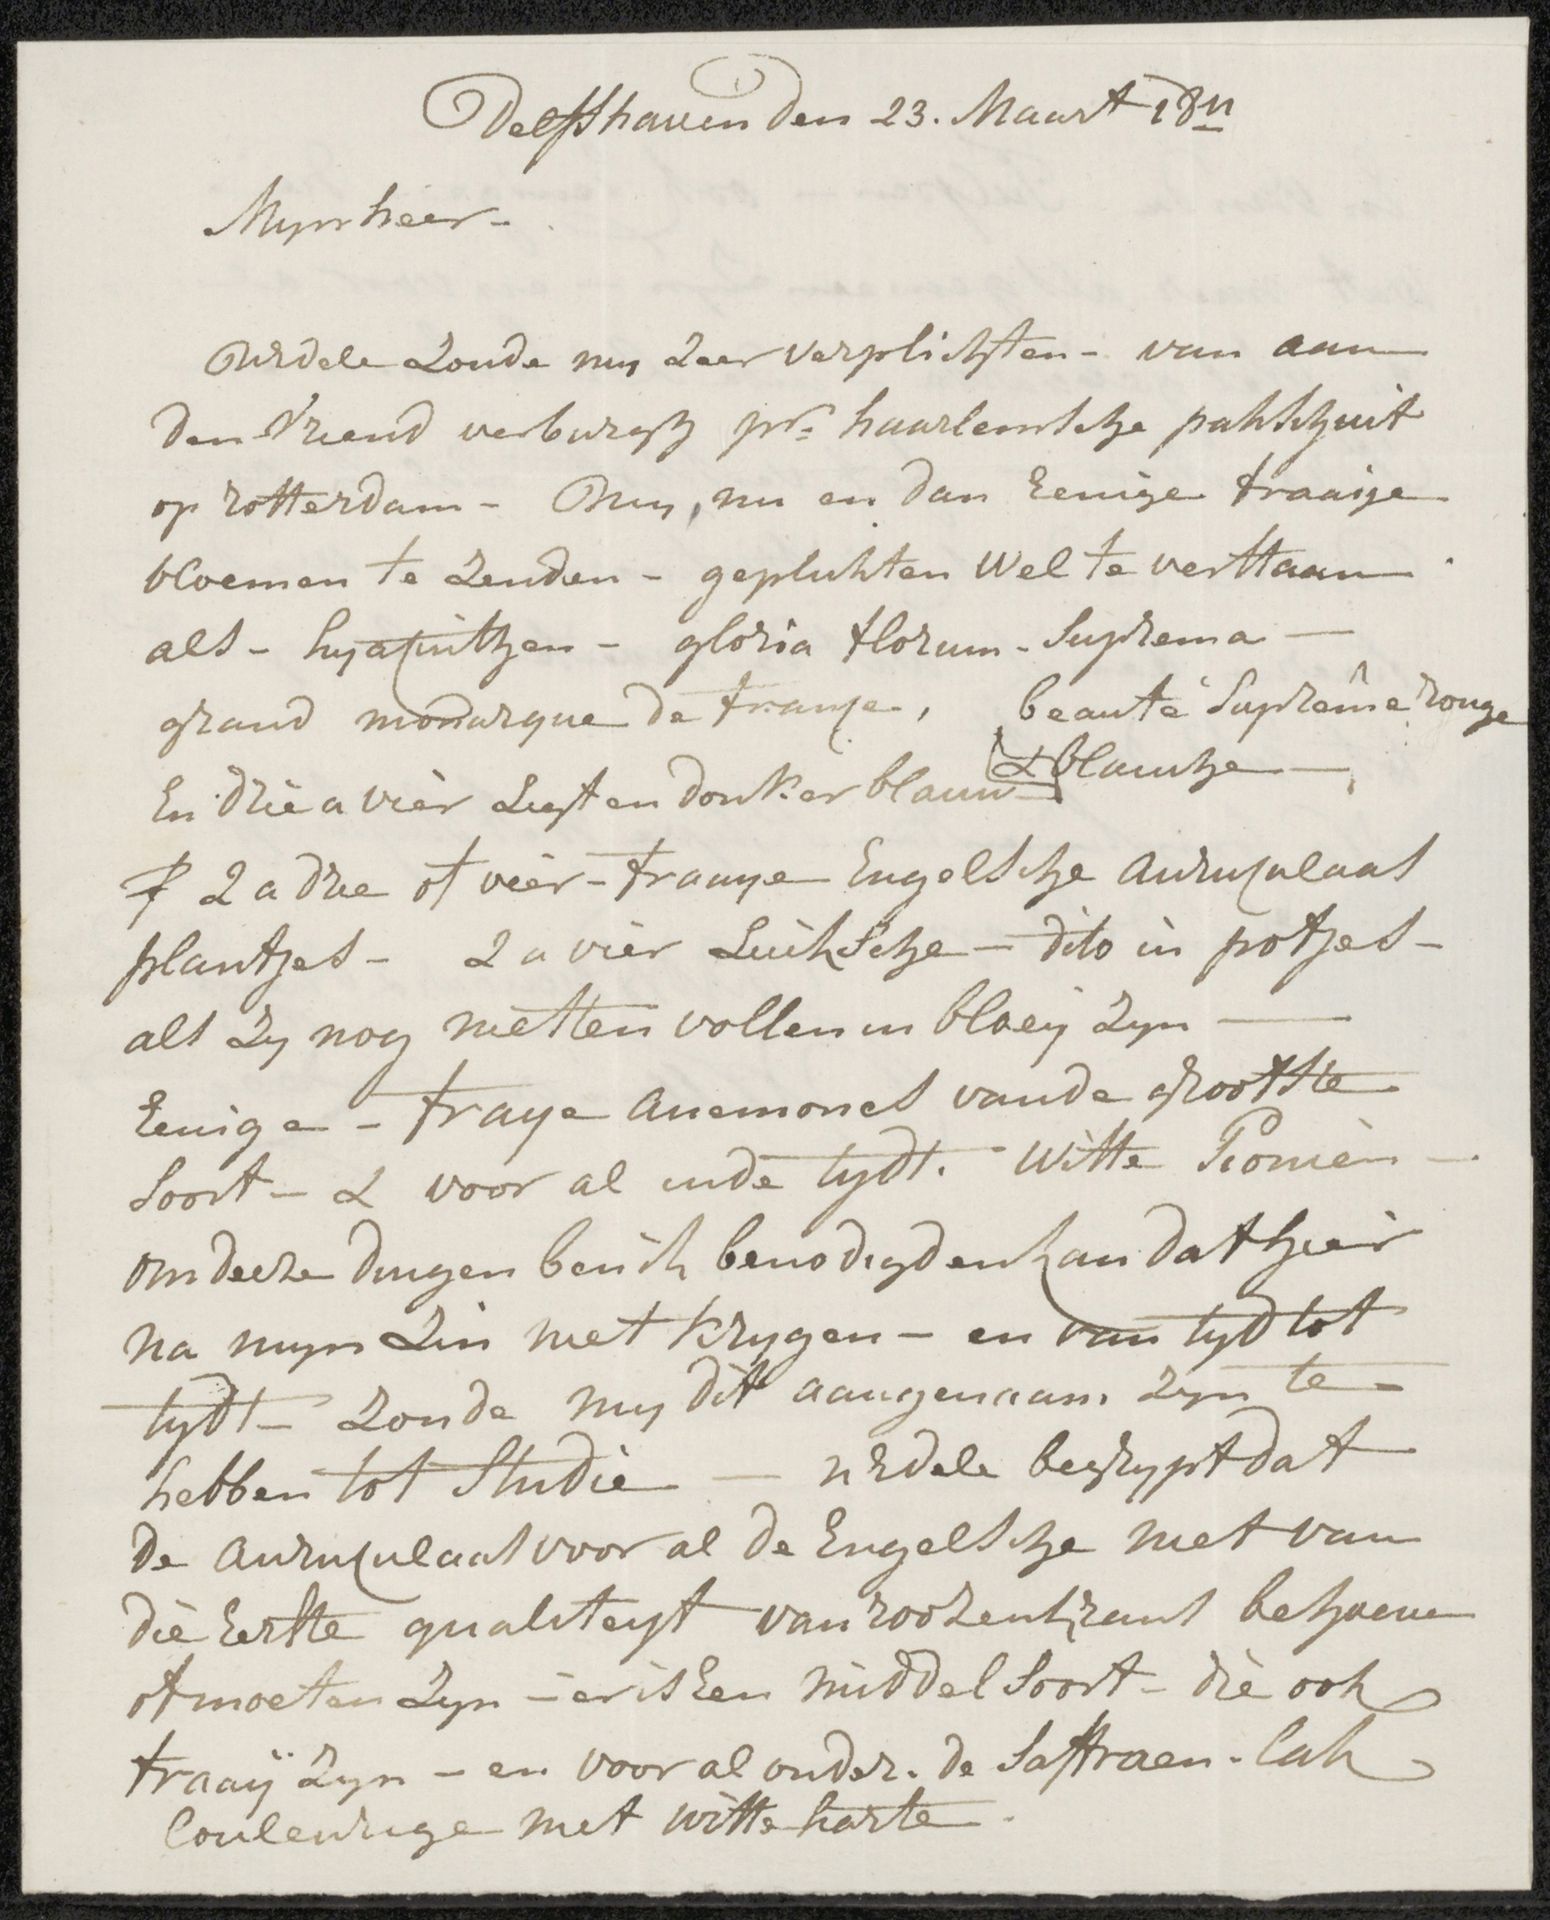 Delfshaven den 23. Maart 1811
Mynheer -
UEdele Zoude my Zeer verplichten - van aan
den Vriend verburgh pr. haarlemsche pakschuit
op rotterdam - My, nu en dan Eenige fraaije
bloemen te Zenden - geplukten Wel te verstaan
als - hyacinthen - gloria florum - Suprema -
grand monarque de françe, beauté Suprême rouge
& blanche -
En drie a vier Ligt en donker blauw
2 a drie of vier - fraaye Engelsche auruculaas
plantjes - 2 a vier Luiksche - dito in potjes -
als Zy nog niet ten vollen in bloeij Zyn -
Eenige - fraye anemones van de grootste
Soort - & voor al inde tydt. Witte Pioniën -
om deeze dingen ben ik benodigd en kan dat hier
na myn Zin niet krygen - en van tyd tot
tydt - Zoude my dit aangenaam Zyn te
hebben tot Studie - UEdele begrypt dat
de auruculaas voor al de Engelsche niet van
die Eerste qualiteyt van roozenkrans behoeven
of moeten Zyn - er is Een middel Soort - die ook
fraaÿ Zyn - en voor al onder. de Saffraen - lak
Couleurige met witte harte.